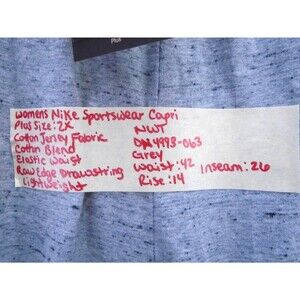 Plus
Womens Nike Sportswear Capri
Plus Size: 2X NWT
Cotton Jersey Fabric DN4993-063
Cotton Blend Grey
Elastic Waist Waist: 42 Inseam: 26
Raw Edge Drawstring Rise: 14
Lightweight